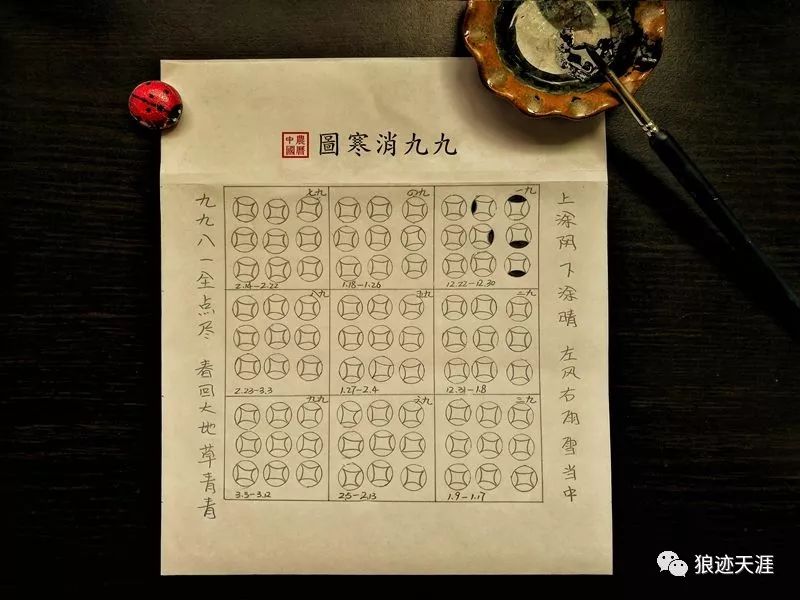 九九消寒圖
中國農曆
上涂阴 下涂晴 左风右雨雪当中
一九
12.22-12.30
二九
12.31-1.8
三九
1.9-1.17
四九
1.18-1.26
五九
1.27-2.4
六九
2.5-2.13
七九
2.14-2.22
八九
2.23-3.3
九九
3.3-3.12
九九八一全点尽 春回大地草青青
狼迹天涯